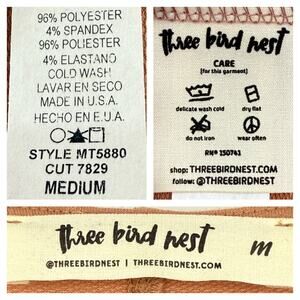 96% POLYESTER
4% SPANDEX
96% POLIESTER
4% ELASTANO
COLD WASH
LAVAR EN SECO
MADE IN U.S.A.
HECHO EN E.U.A.
STYLE MT5880
CUT 7829
MEDIUM
three bird nest
CARE
[for this garment]
delicate wash cold
dry flat
do not iron
wear often
RN# 150743
shop: THREEBIRDNEST.COM
follow: @THREEBIRDNEST
three bird nest
m
@THREEBIRDNEST | THREEBIRDNEST.COM